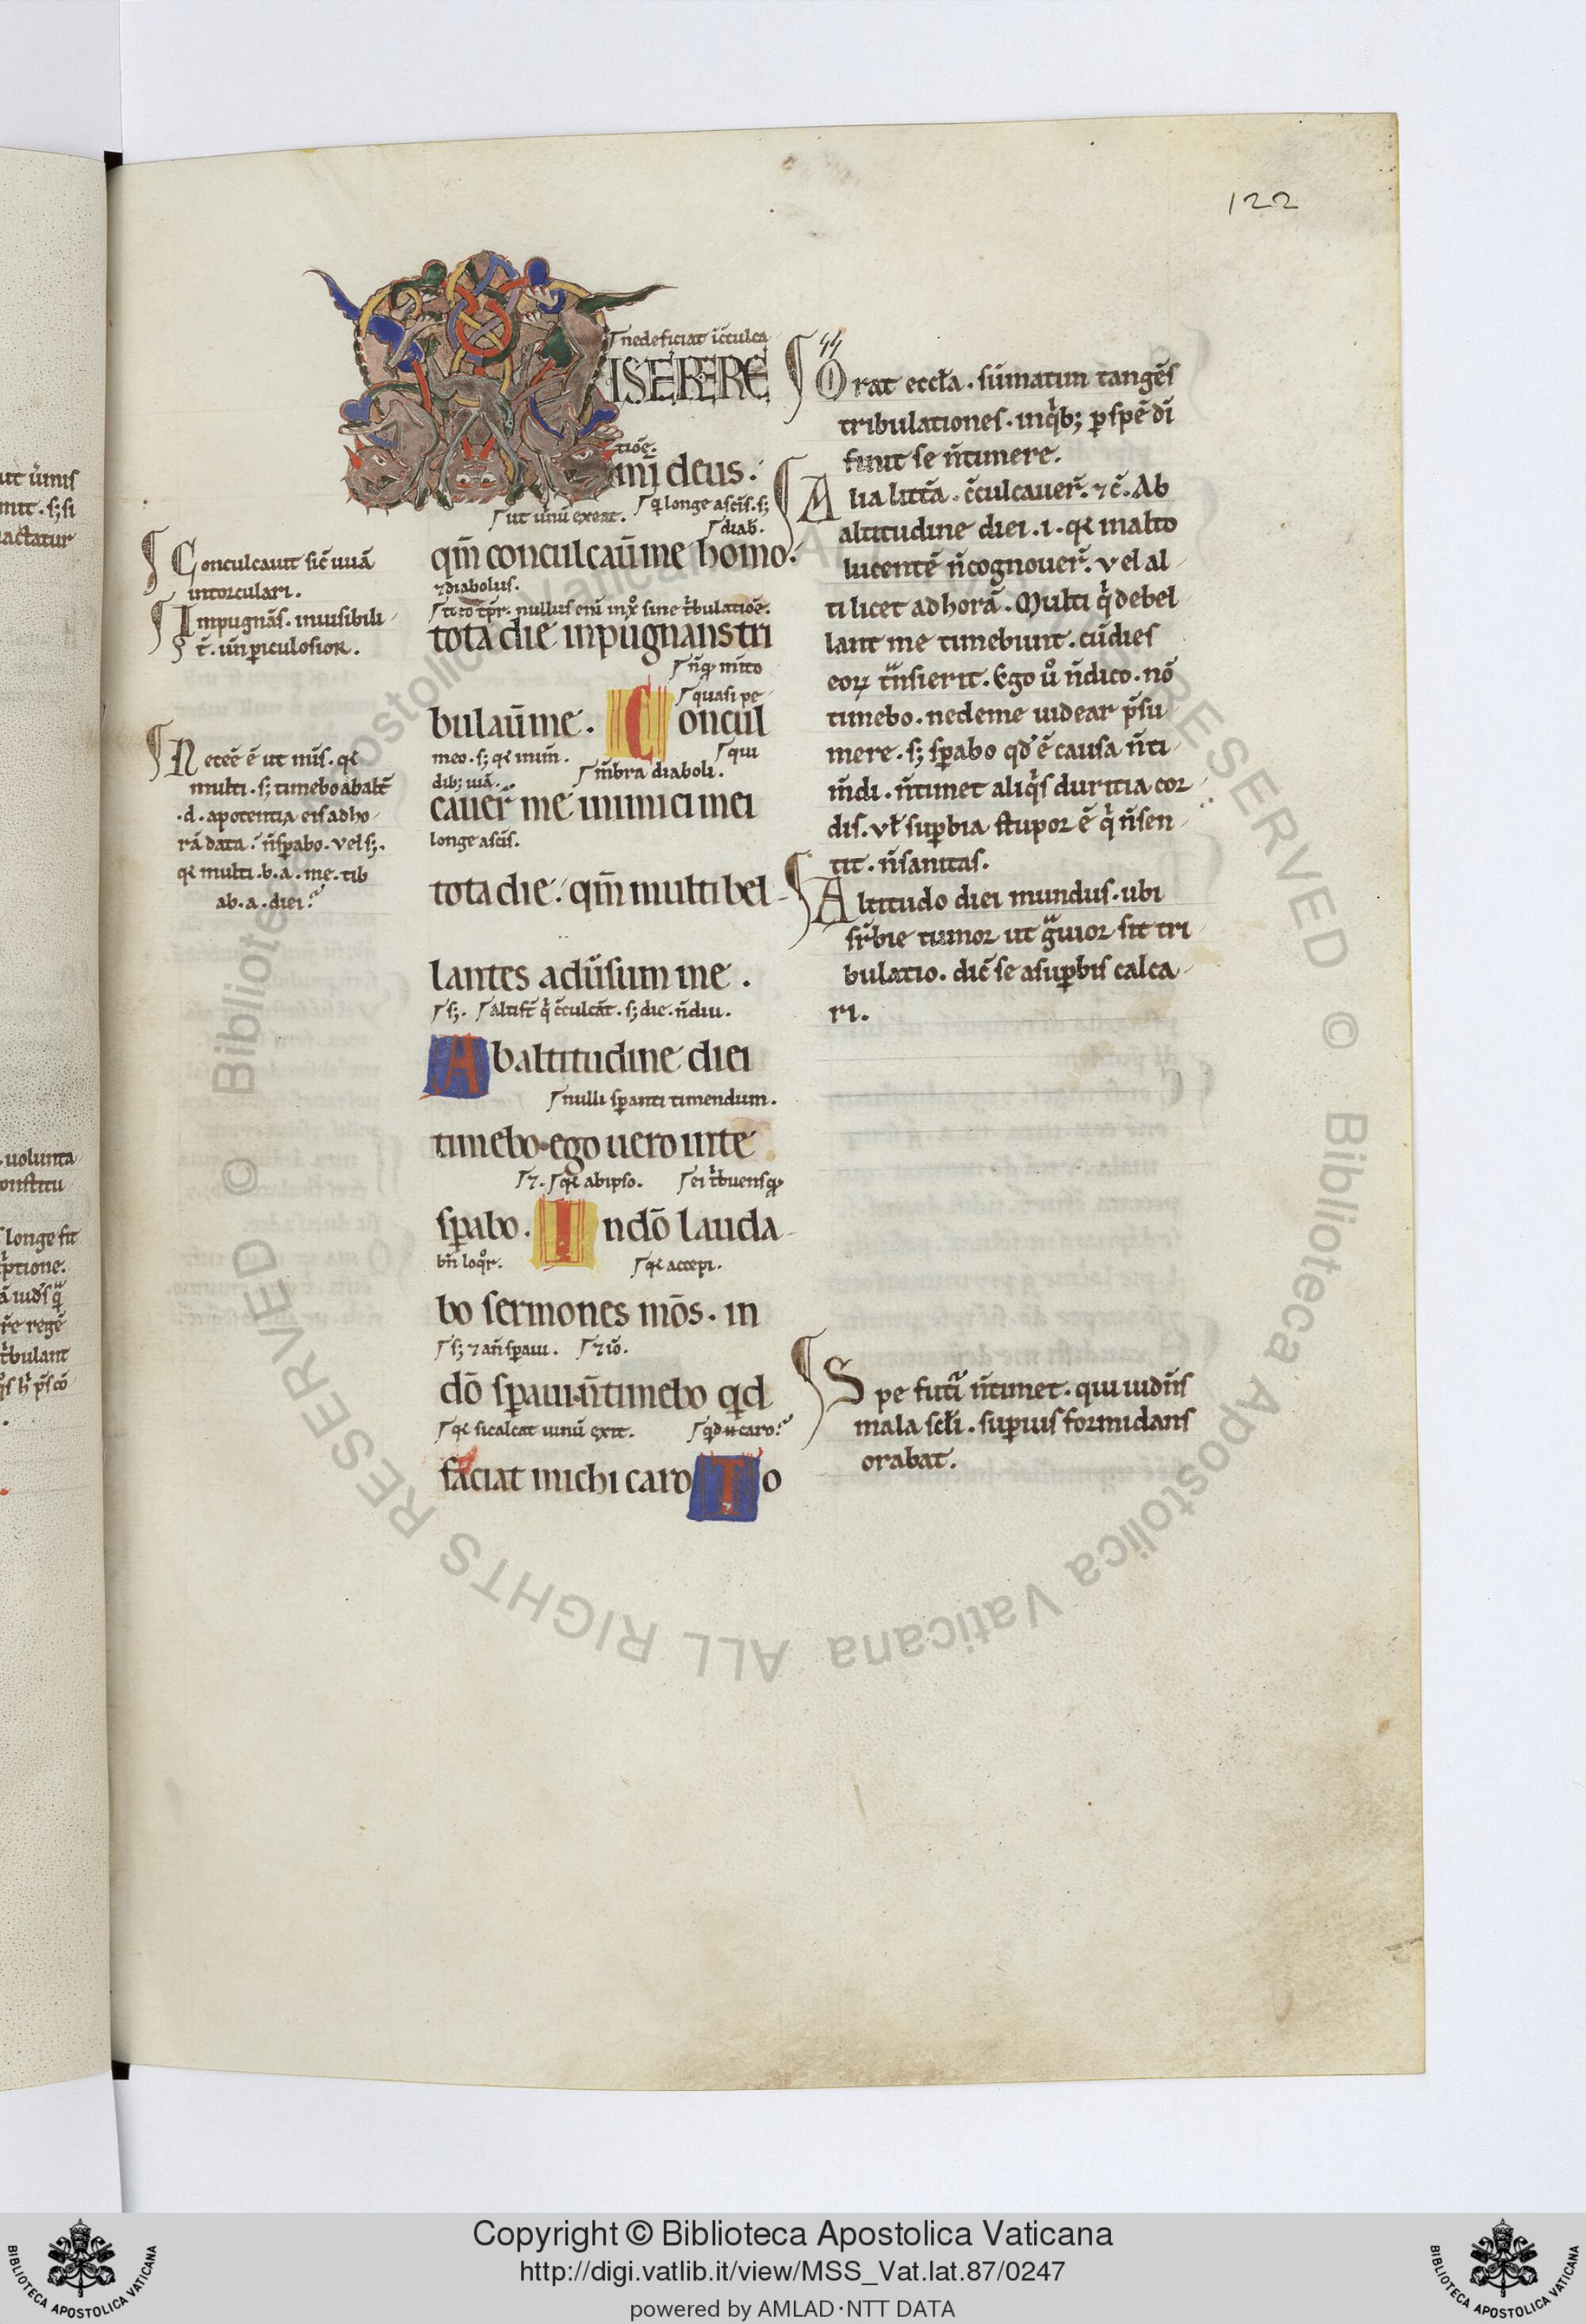 122
ut uin̄is
nit. s; si
actatur
uolunta
onstitu
longe sit
p̄tione.
r̄e regē
t̄bulant
Conculcauit sic̄ uuā
intorculari.
Impugnās. inuisibili
t̄. un̄ piculosior.
Ne teē ē ut mīs. qr
multi. s; timebo ab alt̄
.d. a potentia eis adho
rā data: n̄ sp̄abo. vel s;.
qr multi .b. a. me. tib
ab. a. diei?
ne deficiat ī c̄culca
MISERERE
tiōe.
mīi deus.
ut uinū exeat. q longe a scīs. s;
diab̄.
qm̄ conculcauīt me homo:
7 diabolus.
toto tp̄r. nullus enī in xp̄o sine t̄bulatiōe.
tota die inpugnans tri
nq̄ mīto
quasi pe
bulauīt me. Concul
meo. s; qr inim̄. qui
dib; uiā. m̄bra diaboli.
cauer̄ me inimici mei
longe a scīs.
tota die: qm̄ multi bel
lantes aduersum me.
s;. altis c̄ q̄ c̄culcāt. s; die. n̄ diu.
Ab altitudine diei
nulli sp̄anti timendum.
timebo. ego uero in te
7. qr ab ipso. ei t̄buensq;
sp̄abo. In dō lauda
bn̄ loqr̄. qr accepi.
bo sermones mōs. in
s; 7 añ sp̄aui. 7 iō.
dō sp̄aui. n̄ timebo qd
qr si calcat uinū exit. qd n̄ caro?
faciat michi caro To
Orat eccl̄a. sūmatim tangēs
tribulationes. in qib; p spē dī
finit se n̄ timere.
Alia litt̄a. c̄culcauer̄. 7 c̄. Ab
altitudine diei. i. qr in alto
lucentē n̄ cognouer̄. vel al
ti licet ad horā. Multi q̄ debel
lant me timebunt. cū dies
eorꝝ t̄nsierit. Ego ūo n̄ dico. nō
timebo. ne de me uidear p̄su
mere. s; sp̄abo qd̄ ē causa n̄ ti
m̄di. n̄ timet aliqs duritia cor
dis. vl̄ supbia stupor ē q̄ n̄ sen
tit. n̄ sanitas.
Altitudo diei mundus. ubi
sr̄bie tumor ut ḡuior sit tri
bulatio. dic̄ se a supbis calca
ri.
Spe futi n̄ timet. qui uidn̄s
mala scl̄i. superius formidans
orabat.
© Biblioteca Apostolica Vaticana ALL RIGHTS RESERVED © Biblioteca Apostolica Vaticana ALL RIGHTS RESERVED
Copyright © Biblioteca Apostolica Vaticana
http://digi.vatlib.it/view/MSS_Vat.lat.87/0247
powered by AMLAD·NTT DATA
BIBLIOTECA APOSTOLICA VATICANA
BIBLIOTECA APOSTOLICA VATICANA